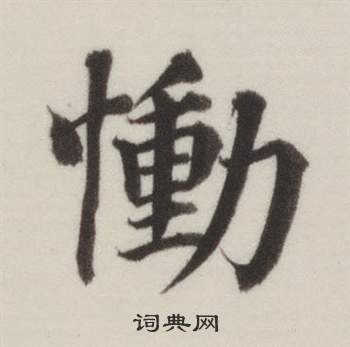 慟
词典网